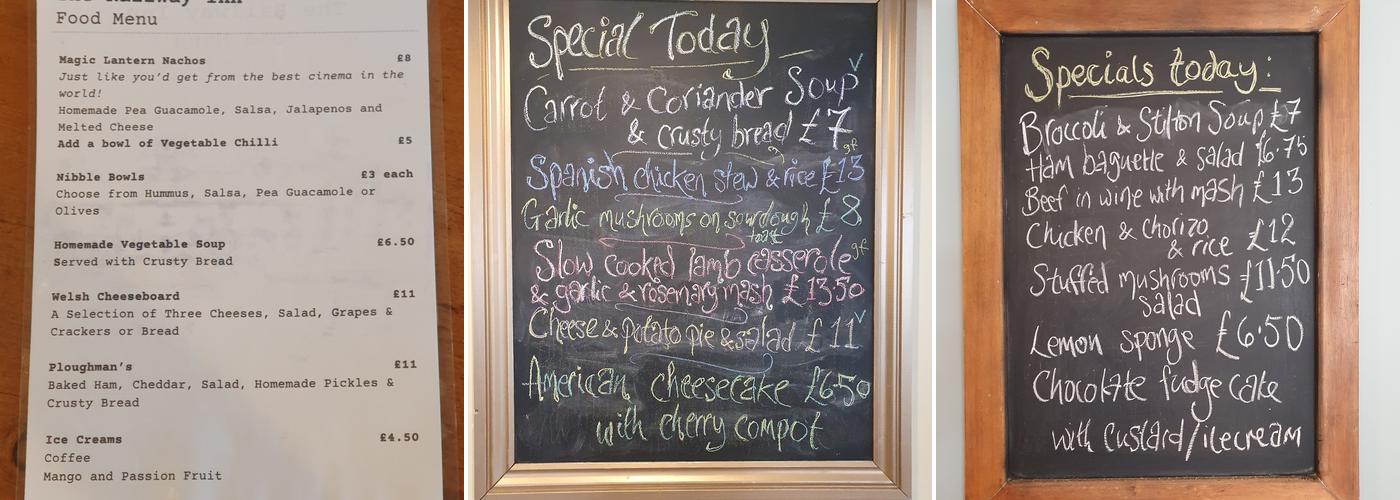 The Railway Inn
Food Menu
Magic Lantern Nachos £8
Just like you'd get from the best cinema in the
world!
Homemade Pea Guacamole, Salsa, Jalapenos and
Melted Cheese
Add a bowl of Vegetable Chilli £5
Nibble Bowls £3 each
Choose from Hummus, Salsa, Pea Guacamole or
Olives
Homemade Vegetable Soup £6.50
Served with Crusty Bread
Welsh Cheeseboard £11
A Selection of Three Cheeses, Salad, Grapes &
Crackers or Bread
Ploughman's £11
Baked Ham, Cheddar, Salad, Homemade Pickles &
Crusty Bread
Ice Creams £4.50
Coffee
Mango and Passion Fruit
Special Today
Carrot & Coriander Soup V
& crusty bread £7
Spanish chicken stew & rice £13 gf
Garlic mushrooms on sourdough £8
toast
Slow cooked lamb casserole gf
& garlic & rosemary mash £13.50
Cheese & potato pie & salad £11 V
American cheesecake £6.50
with cherry compot
Specials today:
Broccoli & Stilton Soup £7
Ham baguette & salad £6.75
Beef in wine with mash £13
Chicken & chorizo
& rice £12
Stuffed mushrooms £11.50
salad
Lemon sponge £6.50
Chocolate fudge cake
with custard/icecream